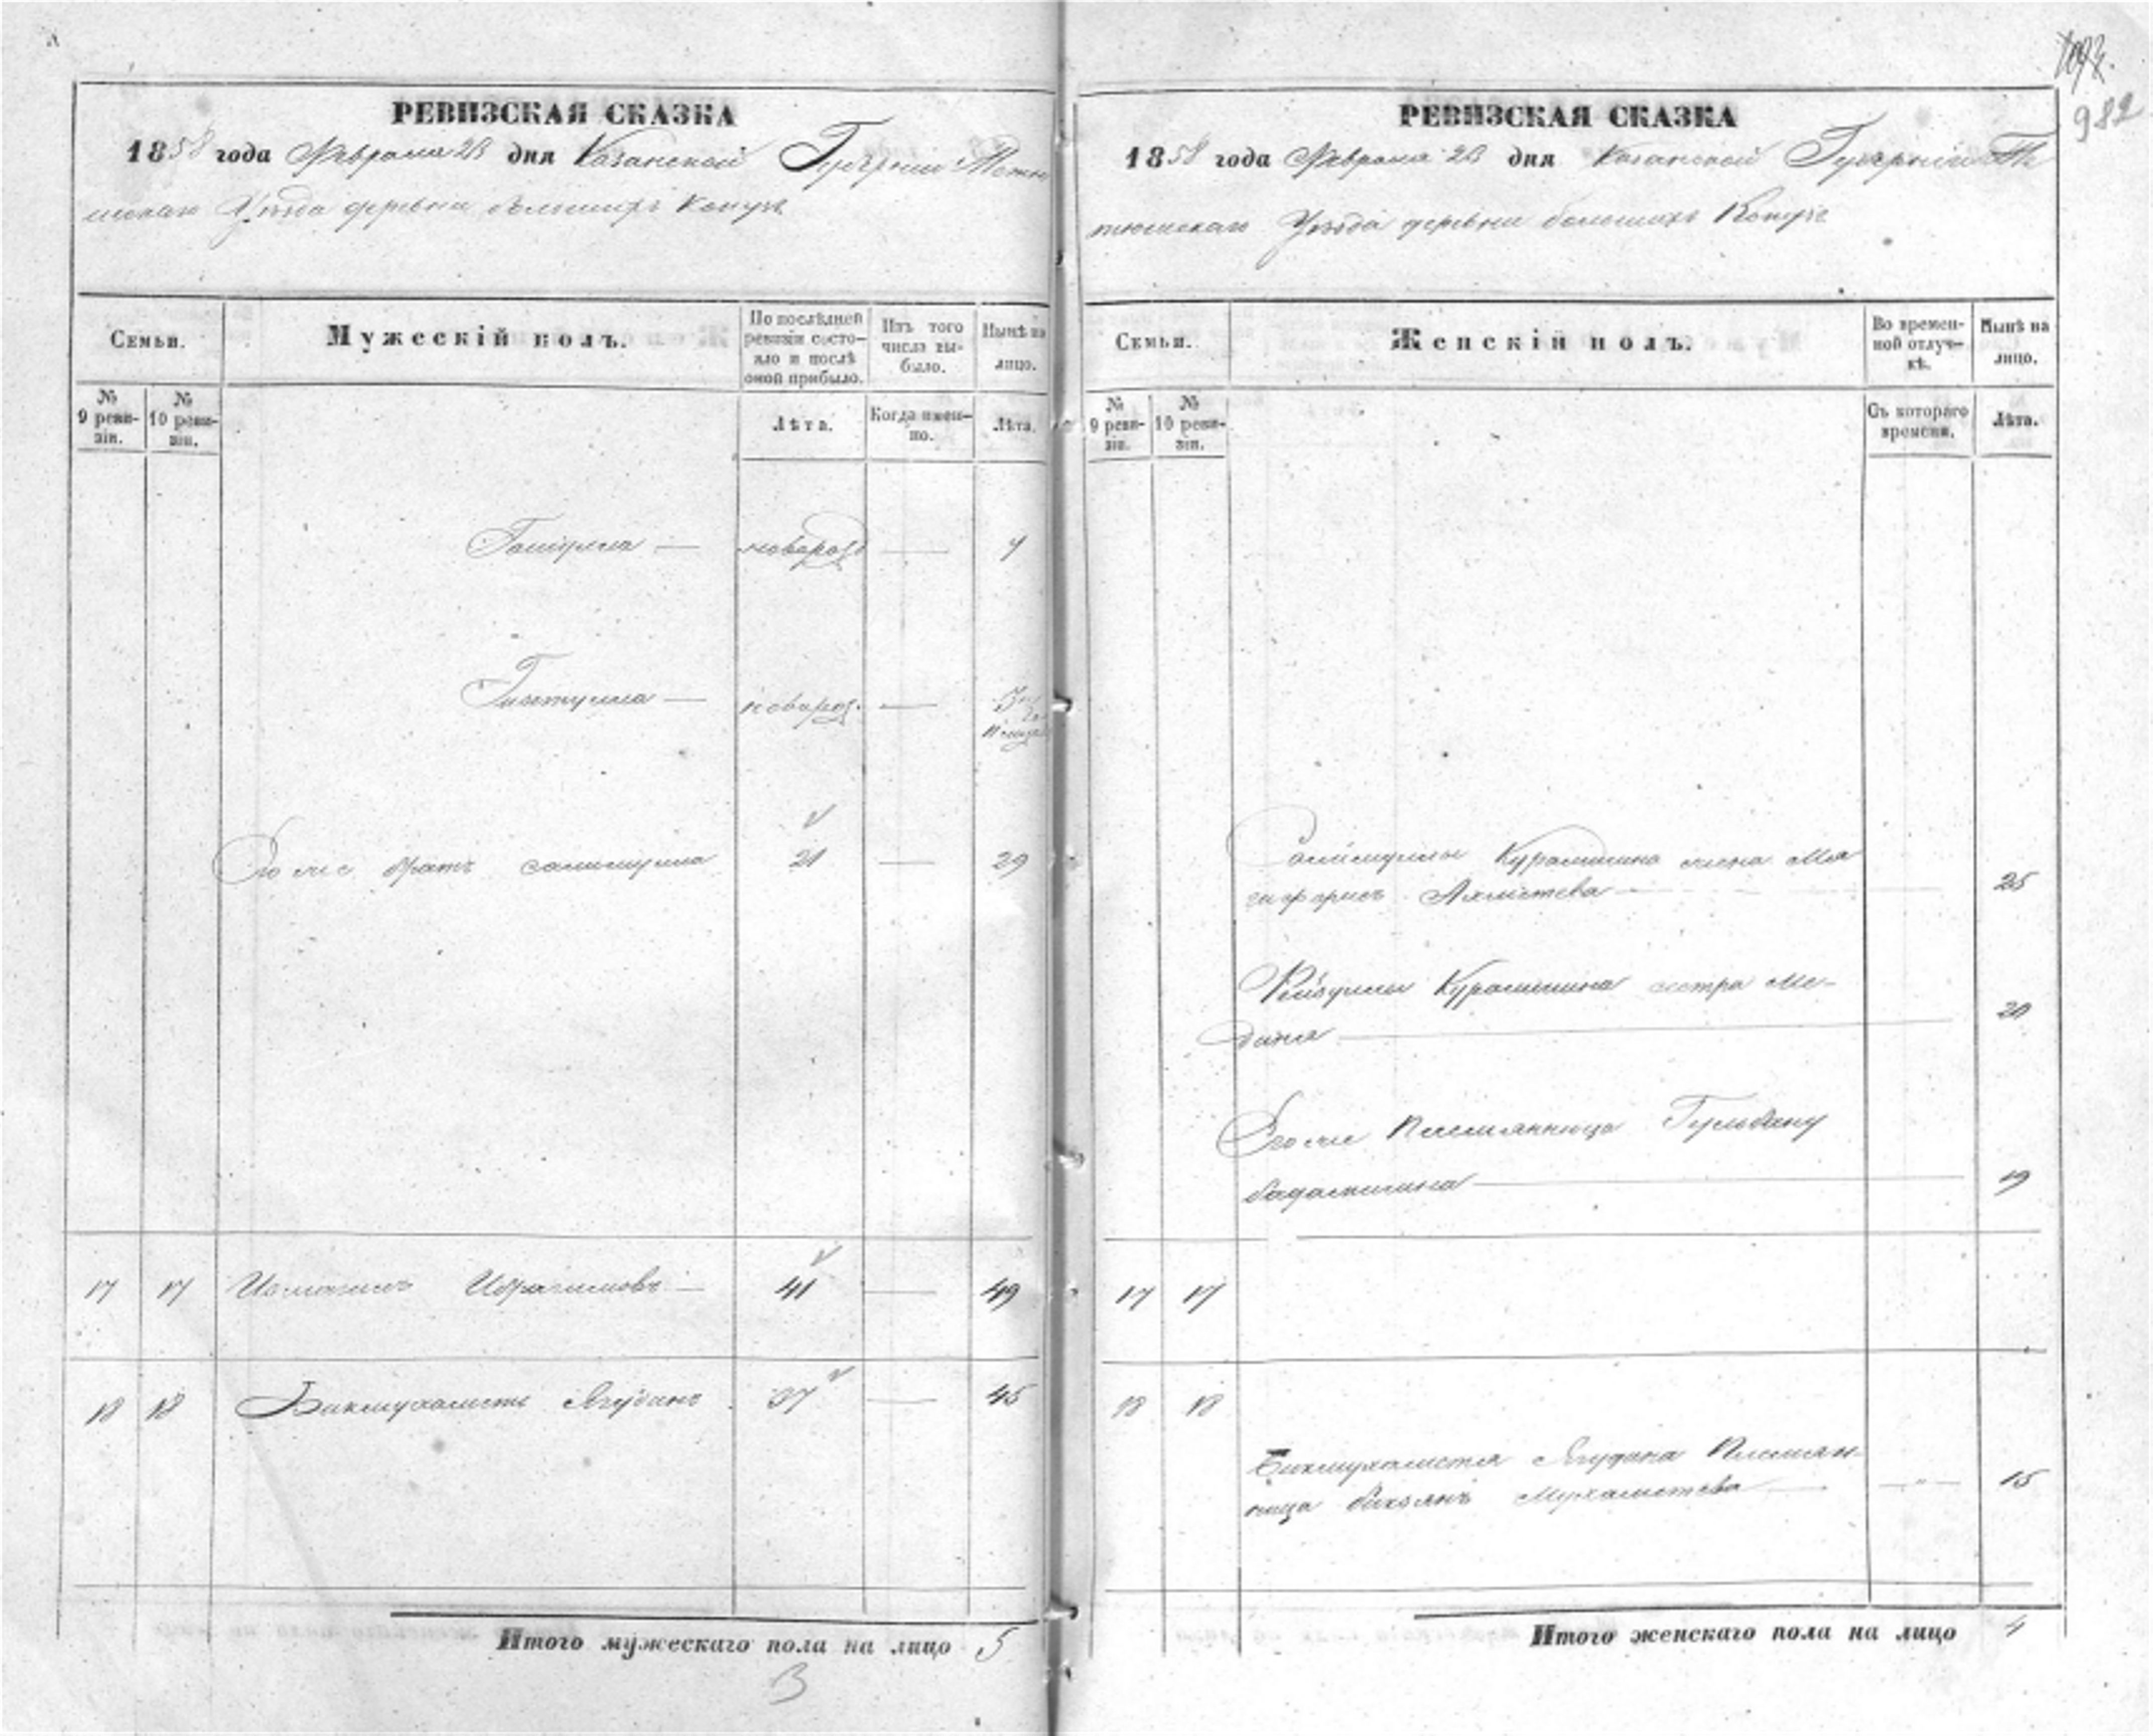 РЕВИЗСКАЯ СКАЗКА
1858 года Февраля 28 дня Казанской Губернии Тетю
шскаго Уѣзда деревни большихъ
Семьи.
Мужескій полъ.
По послѣдней ревизіи состояло и послѣ оной прибыло.
Изъ того числа выбыло.
Нынѣ на лицо.
№ 9 ревизіи.
№ 10 ревизіи.
Лѣта.
Когда именно.
Лѣта.
— новорож — 7
— новорож. —
Его же братъ Салимулла 21 — 29
17 17 Исмагилъ Ибрагимовъ — 41 — 49
18 18 Бикмухаметь Ягудинъ 37 — 45
Итого мужескаго пола на лицо 5
3
982
РЕВИЗСКАЯ СКАЗКА
1858 года Февраля 28 дня Казанской Губерніи Те
тюшскаго Уѣзда деревни большихъ
Семьи.
Женскій полъ.
Во временной отлучкѣ.
Нынѣ на лицо.
№ 9 ревизіи.
№ 10 ревизіи.
Съ котораго времени.
Лѣта.
Салимуллы Курамшина жена
Ахметева — 25
Курамшина сестра Ме-
дина — 20
Его же Племянница Гульбану
— 19
17 17
18 18
Бикмухаметя Ягудина Племян-
ница Мухаметева — 15
Итого женскаго пола на лицо 4